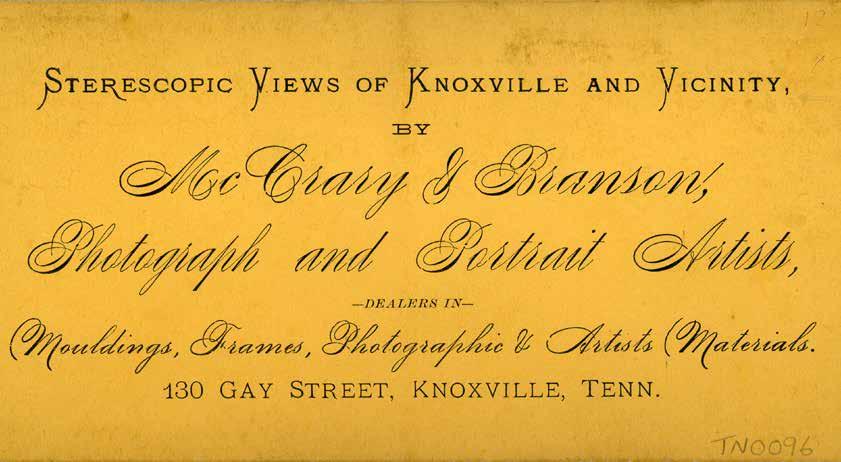 STERESCOPIC VIEWS OF KNOXVILLE AND VICINITY,
BY
McCrary & Branson,
Photograph and Portrait Artists,
—DEALERS IN—
Mouldings, Frames, Photographic & Artists Materials.
130 GAY STREET, KNOXVILLE, TENN.
TN0096